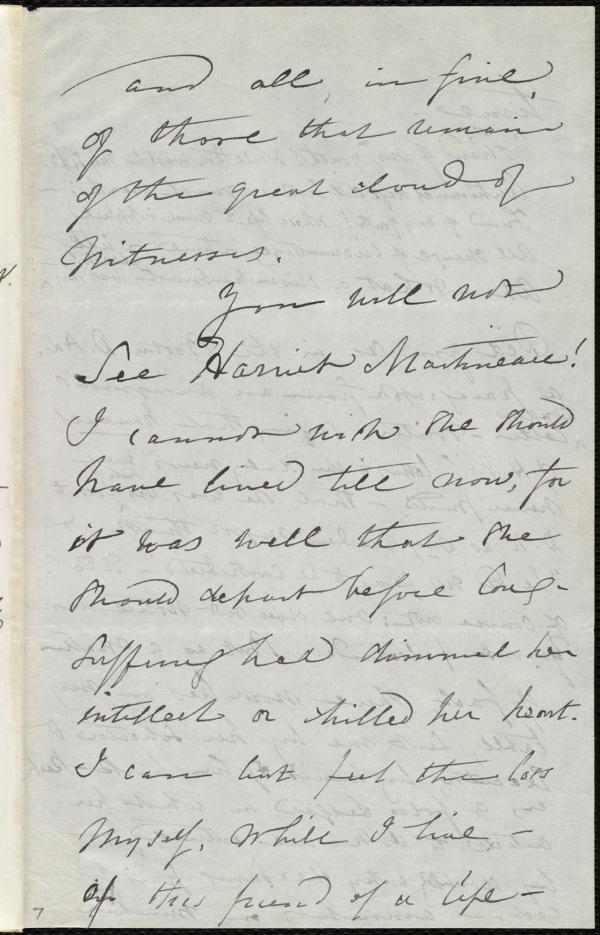 and all, in fine,
of those that remain
of the great cloud of
Witnesses.
You will not
See Harriet Martineau!
I cannot wish she should
have lived till now, for
it was well that she
should depart before long-
suffering had dimmed her
intellect or chilled her heart.
I can but feel the loss
myself, while I live -
of this friend of a life -
7